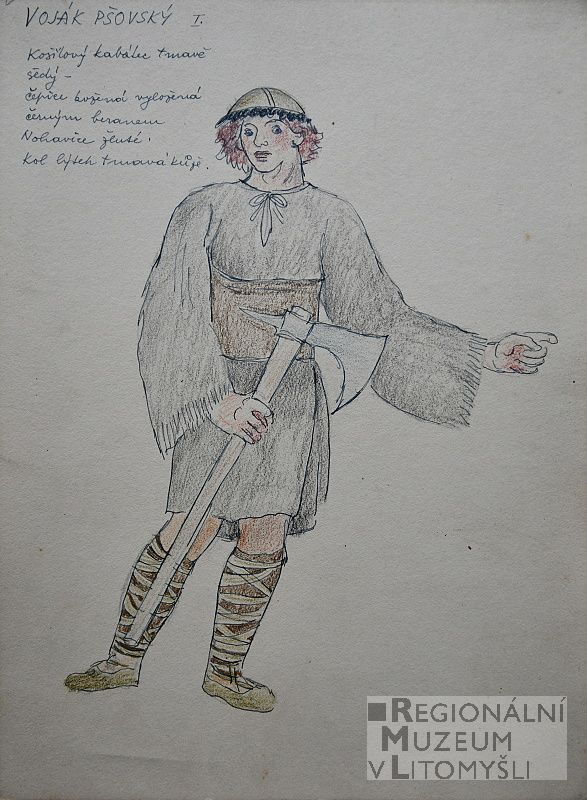 VOJÁK PŠOVSKÝ I.
Košilový kabátec tmavě
šedý -
čepice kožená vyložená
černým beranem
Nohavice žluté.
Kol lýtek tmavá kůže.
REGIONÁLNÍ
MUZEUM
V LITOMYŠLI